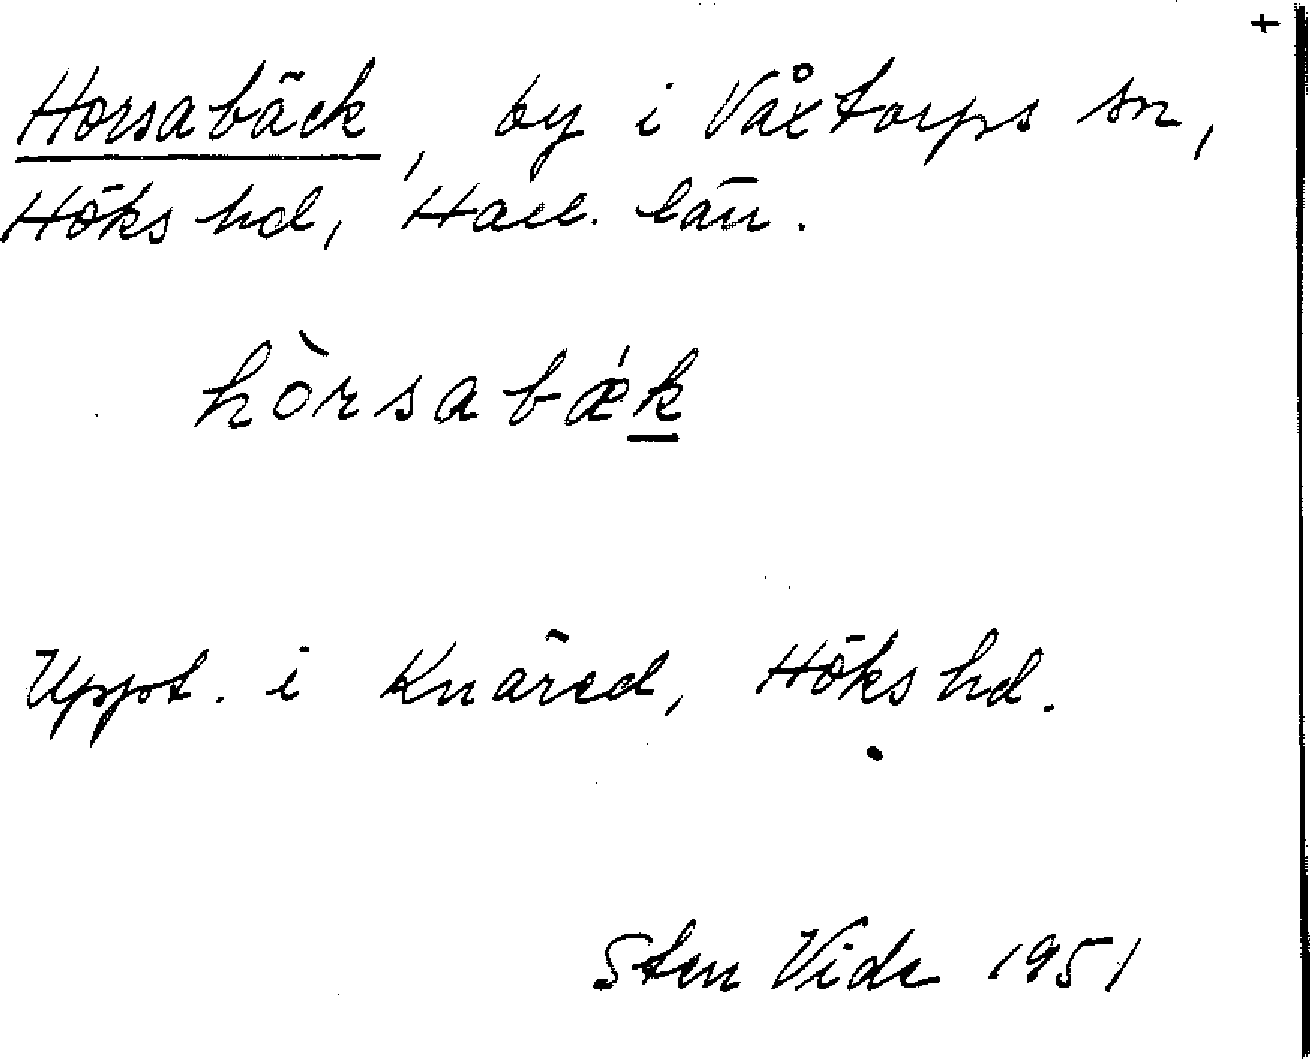 +
Horsabäck, by i Våxtorps sn,
Höks hd, Hall. län.
hòrsabǽk
Uppt. i Knäred, Höks hd.
Sten Vide 1951